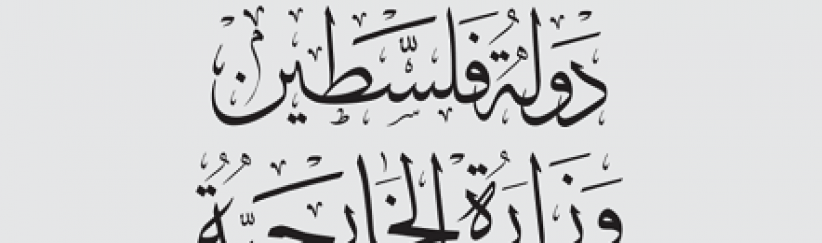 دولة فلسطين
وزارة الخارجية